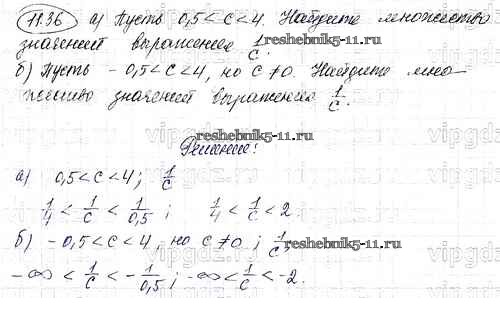 11.36 а) Пусть 0,5 < c < 4. Найдите множество
значений выражения 1/c.
reshebnik5-11.ru
б) Пусть - 0,5 < c < 4, но c ≠ 0. Найдите мно-
жество значений выражения 1/c.
reshebnik5-11.ru
Решение:
а) 0,5 < c < 4; 1/c
1/4 < 1/c < 1/0,5 ; 1/4 < 1/c < 2
б) - 0,5 < c < 4, но c ≠ 0 ; 1/c;
reshebnik5-11.ru
-∞ < 1/c < - 1/0,5 ; -∞ < 1/c < -2.